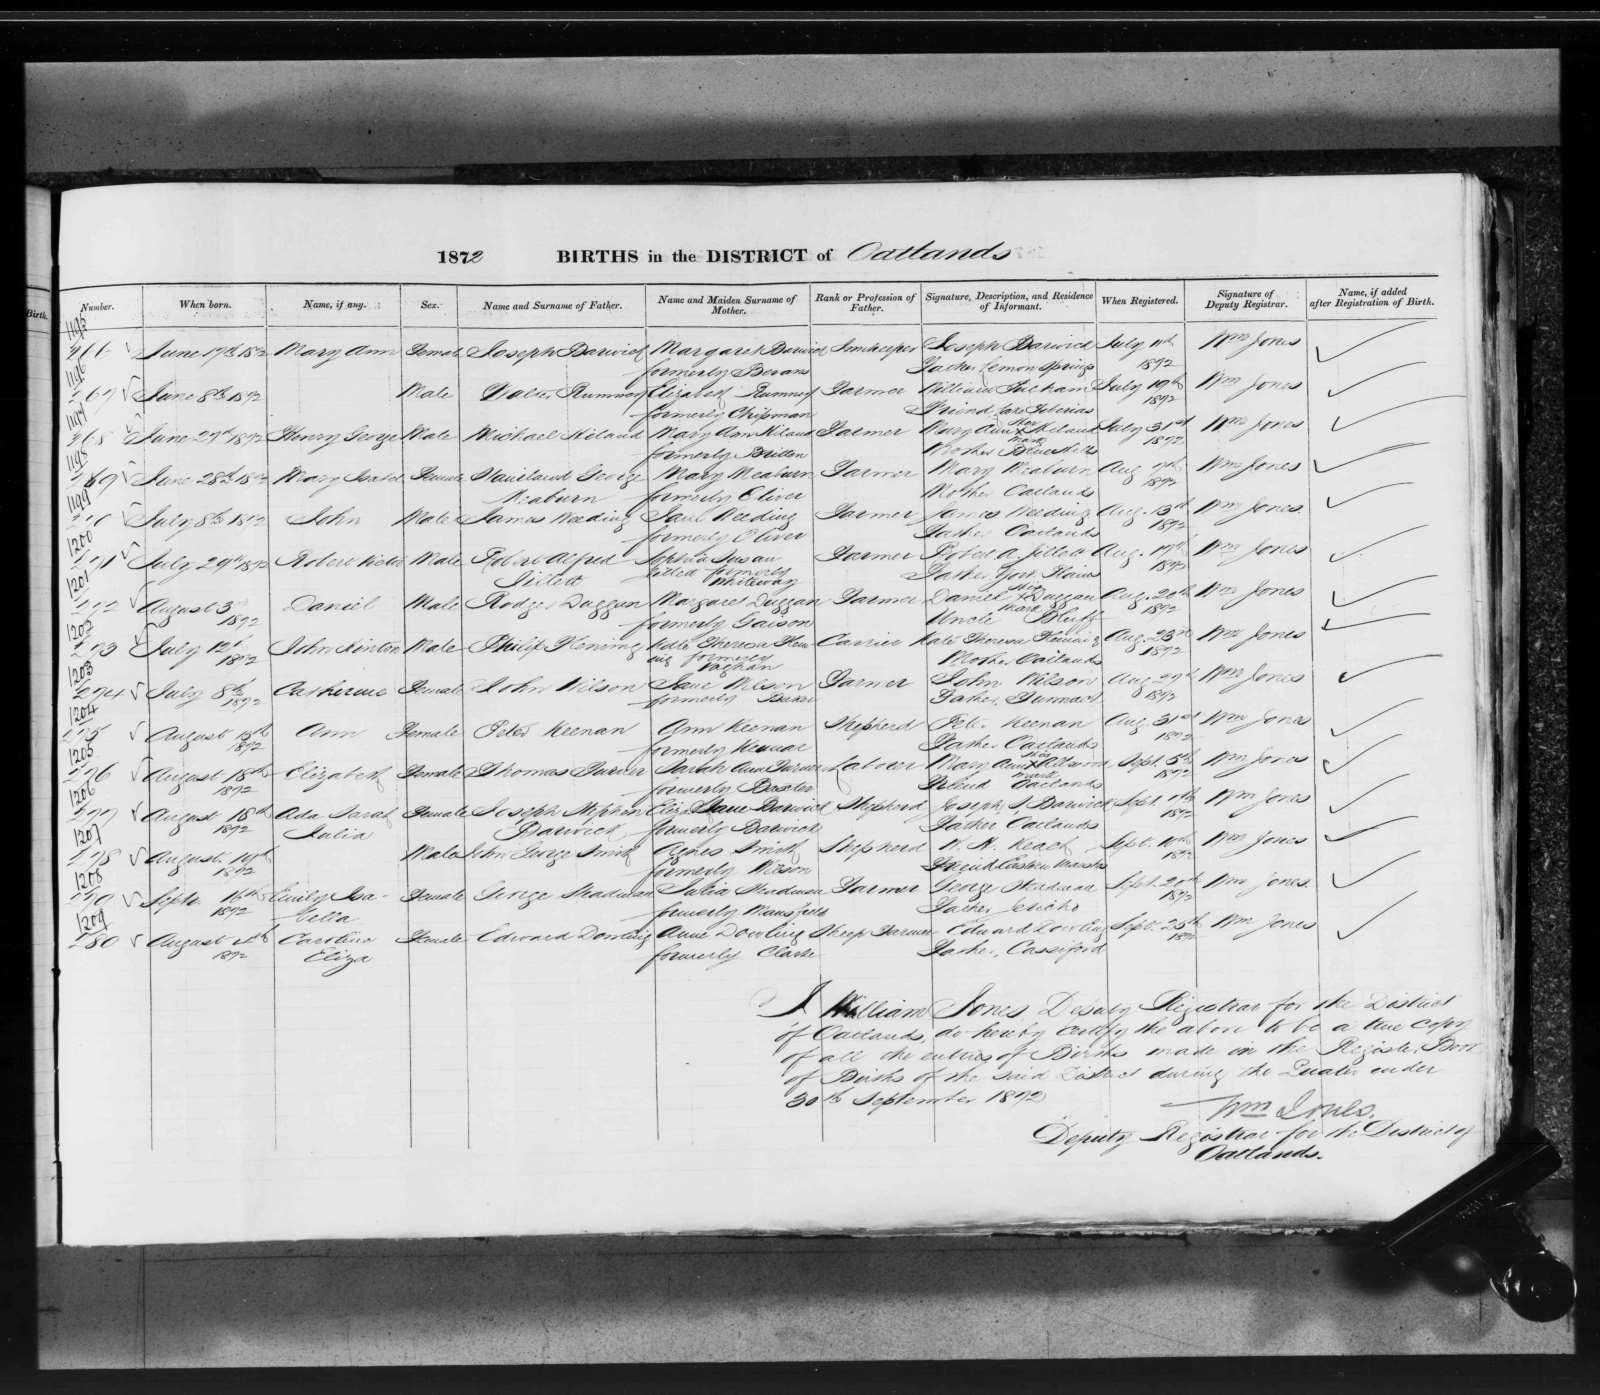 1872 BIRTHS in the DISTRICT of Oatlands
Birth.
Number. When born. Name, if any. Sex. Name and Surname of Father. Name and Maiden Surname of Mother. Rank or Profession of Father. Signature, Description, and Residence of Informant. When Registered. Signature of Deputy Registrar. Name, if added after Registration of Birth.
1195
June 17th 1872 Mary Ann Female Joseph Barwick Margaret Barwick Innkeeper Joseph Barwick July 11th Wm Jones
formerly Bevans Father Lemon Springs 1872
1196
June 8th 1872 Male Walter Rumney Elizabeth Rumney Farmer William Fulham July 19th Wm Jones
formerly Chipman Friend Lake Tiberias 1872
1197
268 June 29th 1872 Henry George Male Michael Niland Mary Ann Niland Farmer Mary Ann X Niland July 31st Wm Jones
her mark
formerly Britten Mother Blue Hills 1872
1198
269 June 28th 1872 Mary Isabel Female Haviland George Mary Meaburn Farmer Mary Meaburn Aug 7th Wm Jones
Meaburn formerly Oliver Mother Oatlands 1872
1199
270 July 8th 1872 John Male James Weeding Jane Weeding Farmer James Weeding Aug. 13th Wm Jones
formerly Oliver Father Oatlands 1872
1200
271 July 29th 1872 Robert Victor Male Robert Alfred Sophia Susan Farmer Robert A. Jillett Aug. 19th Wm Jones
Jillett Jillett formerly Whiteway Father York Plains 1872
1201
272 August 3rd Daniel Male Rodger Duggan Margaret Duggan Farmer Daniel X Duggan Aug. 20th Wm Jones
his mark
1872 formerly Uncle Bluff 1872
1202
273 July 12th John Male Philip Fleming Kate Theresa Fleming Carrier Kate Theresa Fleming Aug. 23rd Wm Jones
1872 formerly Vaghan Mother Oatlands 1872
1203
274 July 8th Catherine Female John Wilson Jane Wilson Farmer John Wilson Aug. 29th Wm Jones
1872 formerly Baker Father, 1872
1204
275 August 15th Ann Female Peter Keenan Ann Keenan Shepherd Peter Keenan Aug 31st Wm Jones
1872 formerly Father Oatlands 1872
1205
276 August 18th Elizabeth Female Thomas Turner Sarah Ann Turner Labourer Mary Ann X Sept. 5th Wm Jones
her mark
1872 formerly Baxter Friend Oatlands 1872
1206
277 August 18th Ada Sarah Female Joseph Stephen Eliza Jane Barwick Shepherd Joseph S. Barwick Sept. Wm Jones
1872 Julia Barwick formerly Barwick Father Oatlands 1872
1207
278 August 19th Male John George Smith Agnes Smith Shepherd W. H. Keach Sept. 10th Wm Jones
1872 formerly Wilson Friend Eastern Marshes 1872
1208
279 Septr. 16th Emily Isa- Female George Steadman Julia Steadman Farmer George Steadman Sept. 20th Wm Jones.
1872 bella formerly Mansfield Father Jericho 1872
1209
280 August Caroline Female Edward Dowling Anne Dowling Sheep Farmer Edward Dowling Sept. 25th Wm Jones
1872 Eliza formerly Clarke Father, 1872
I William Jones Deputy Registrar for the District
of Oatlands, do hereby certify the above to be a true copy
of all the entries of Births made in the Register Book
of Births of the said District during the Quarter ended
30th September 1872
Wm Jones.
Deputy Registrar for the District of
Oatlands.